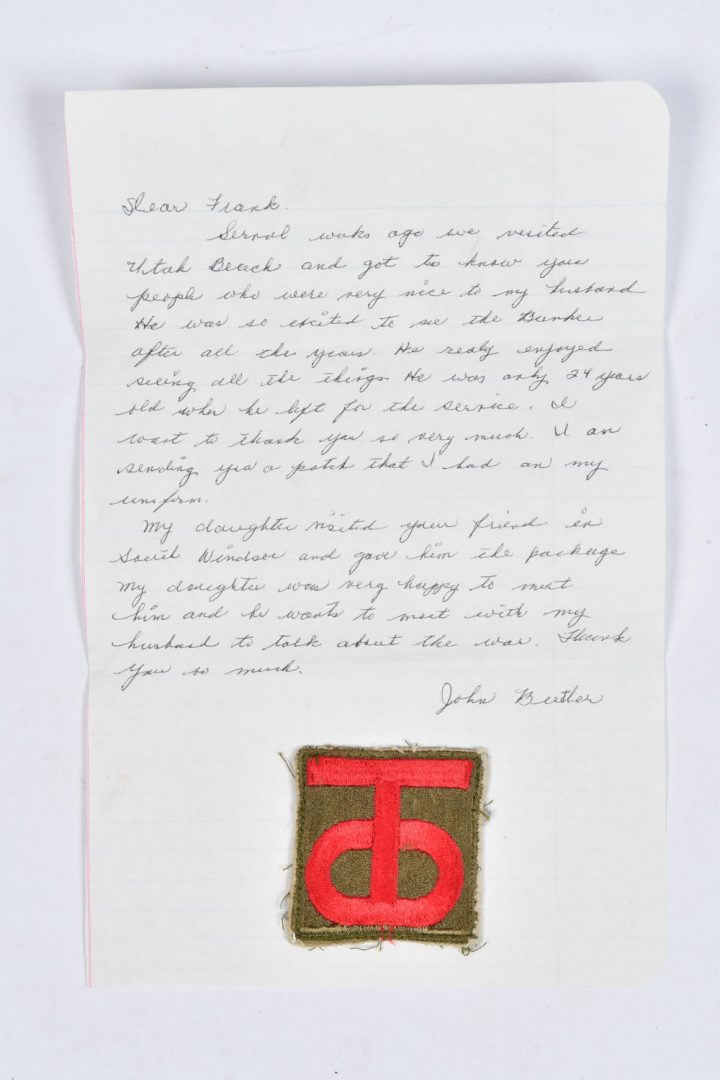 Dear Frank.
Servol weeks ago we visited
Utah Beach and got to know your
people who were very nice to my husband
He was so excited to see the Bunker
after all the years. He realy enjoyed
seeing all the things. He was only 24 years
old when he left for the service. I
want to thank you so very much. I am
sending you a patch that I had on my
uniform.
My daughter visited your friend in
South Windsor and gave him the package
My daughter was very happy to meet
him and he wants to meet with my
husband to talk about the war. Thank
You so much.
John Butler